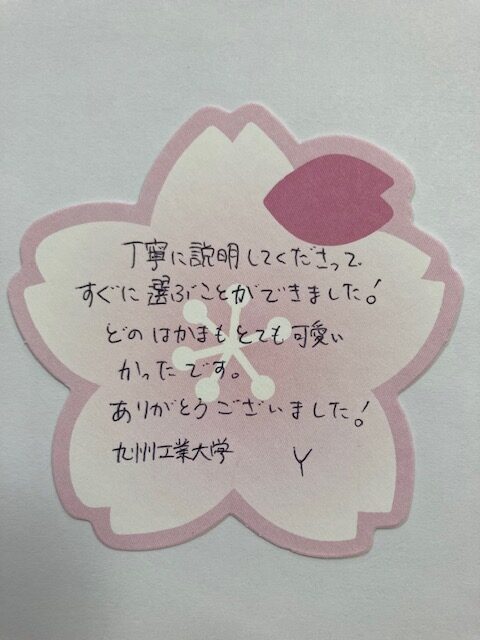 丁寧に説明してくださって
すぐに選ぶことができました!
どのはかまもとても可愛い
かったです。
ありがとうございました!
九州工業大学 Y